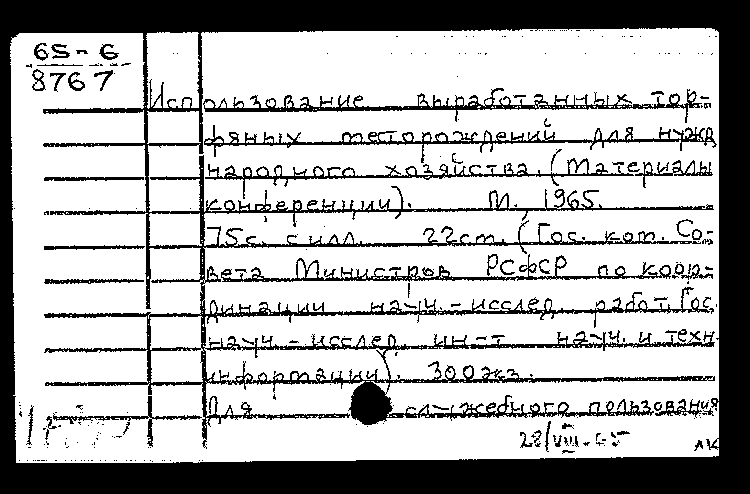 65-6
8767
Использование выработанных тор-
фяных месторождений для нужд
народного хозяйства. (Материалы
конференции). М. 1965.
75с. с илл. 22см. (Гос. ком. Со-
вета Министров РСФСР по коор-
динации науч.-исслед. работ. Гос.
науч.-исслед. ин-т науч. и техн.
информации). 300экз.
Для служебного пользования
28/VIII-65